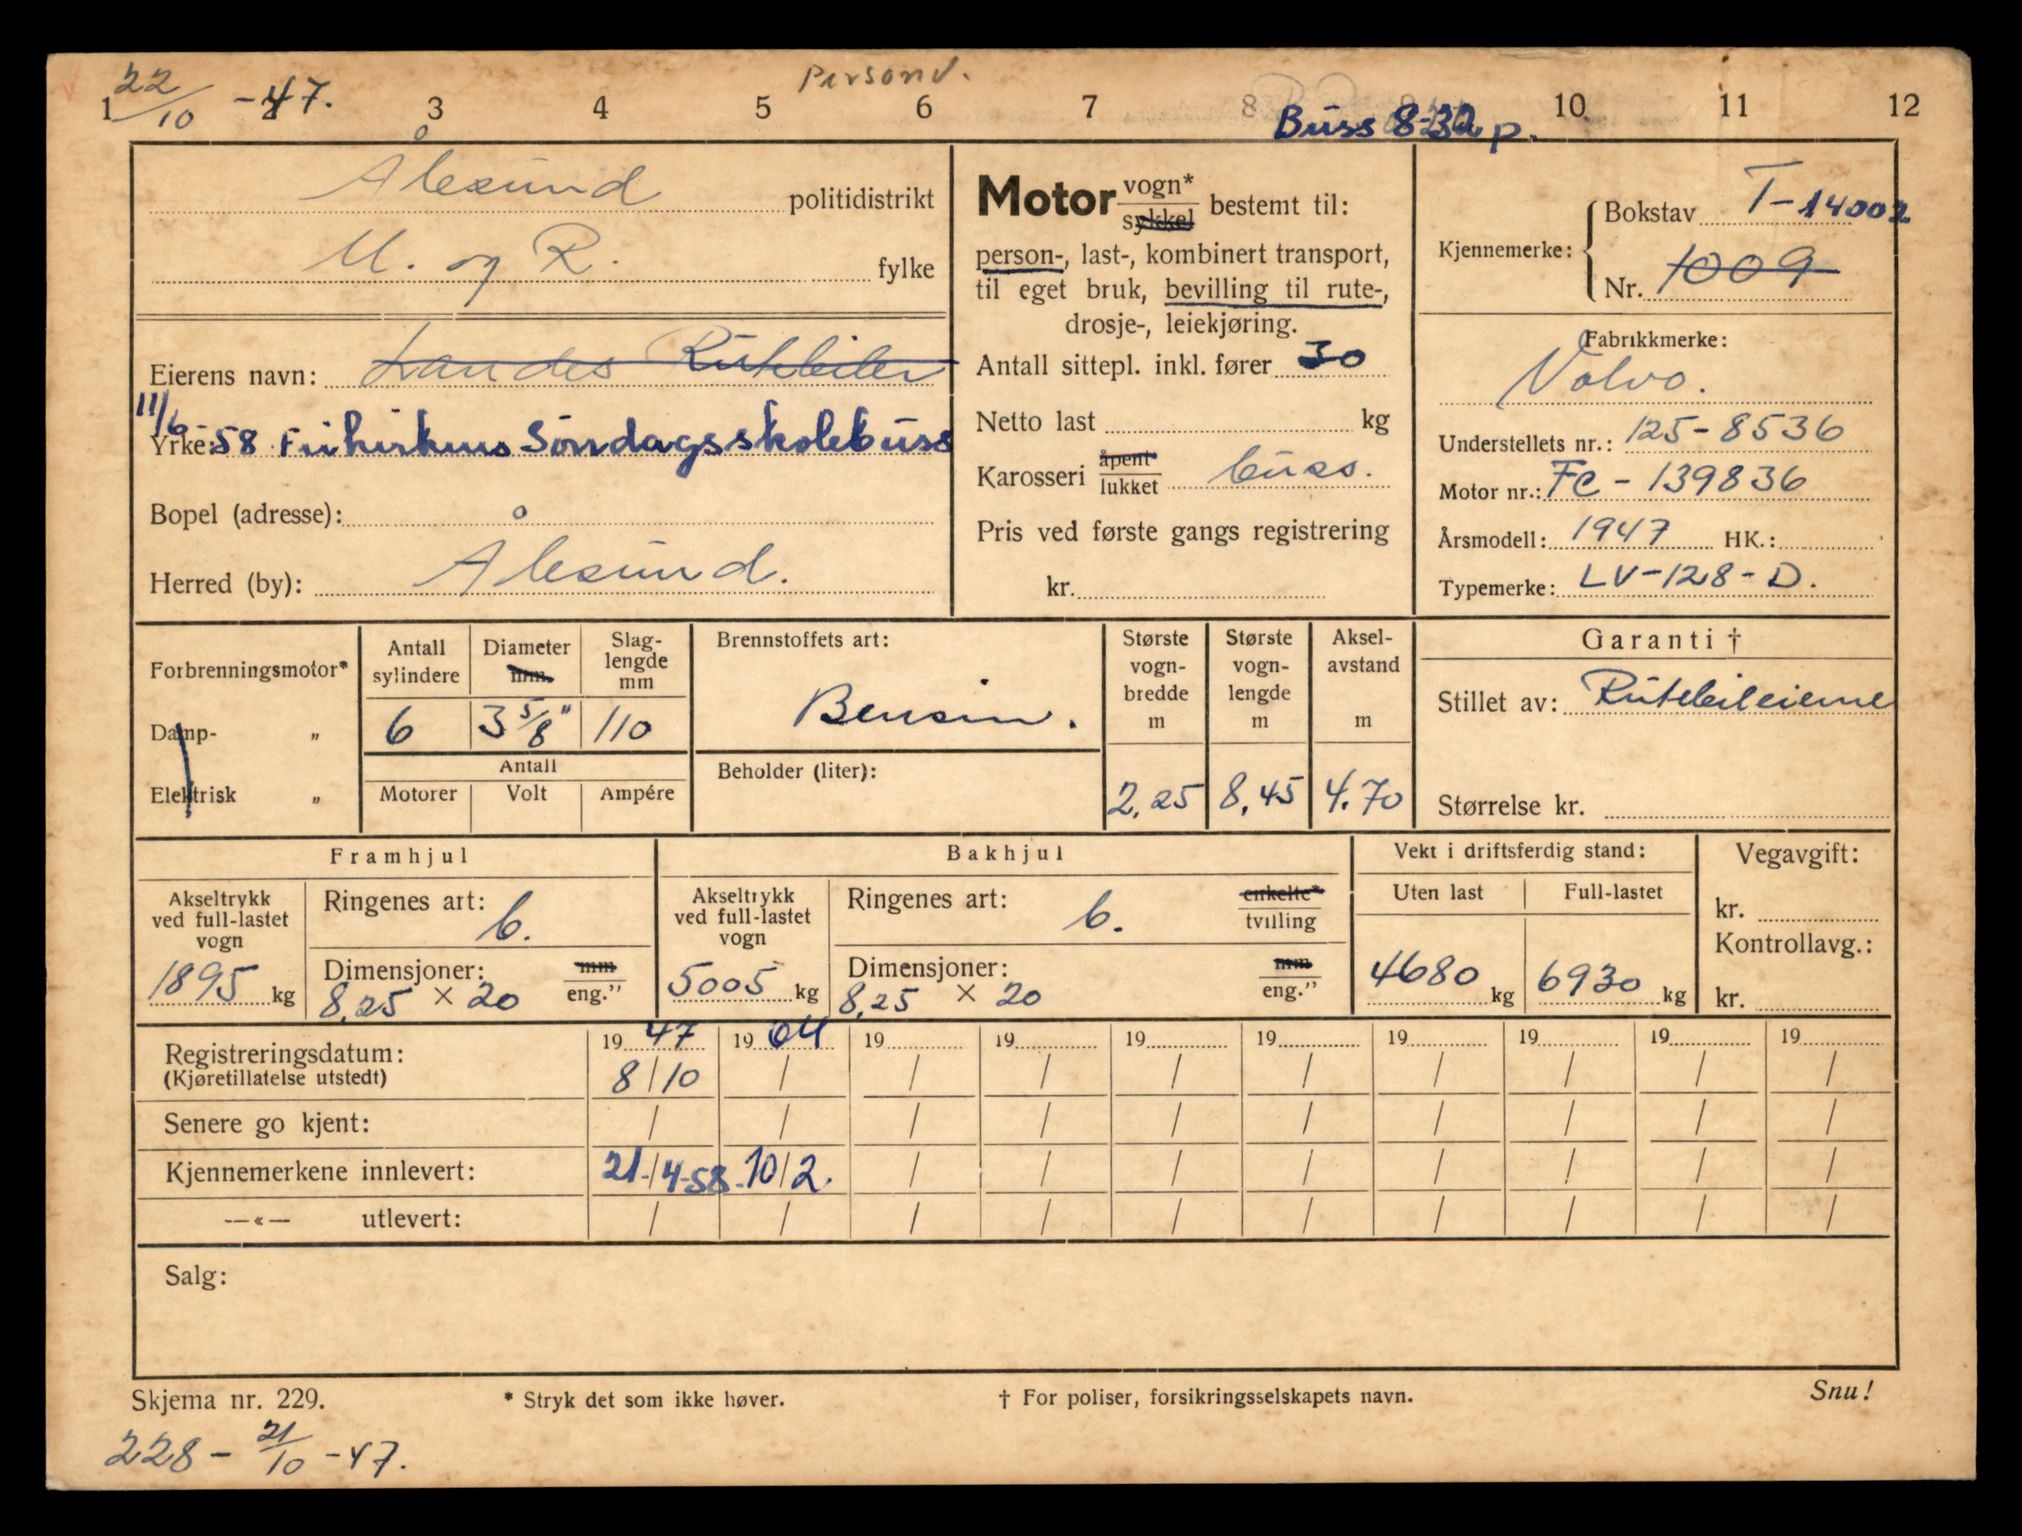 22/10 -47. Personv.
1 2 3 4 5 6 7 8 10 11 12
Buss 8-30 p.
Ålesund politidistrikt
M. og R. fylke
Eierens navn: Landes Rutebiler
11/6-58 Frikirkens Søndagsskolebuss
Yrke:
Bopel (adresse):
Herred (by): Ålesund.
Motor vogn* / sykkel bestemt til:
person-, last-, kombinert transport,
til eget bruk, bevilling til rute-,
drosje-, leiekjøring.
Antall sittepl. inkl. fører 30
Netto last kg
Karosseri åpent* / lukket buss.
Pris ved første gangs registrering
kr.
Kjennemerke: Bokstav T-14002
Nr. 1009
Fabrikkmerke:
Volvo.
Understellets nr.: 125-8536
Motor nr.: FC-139836
Årsmodell: 1947 HK.:
Typemerke: LV-128-D.
Forbrenningsmotor*
Damp- „
Elektrisk „
Antall sylindere Diameter mm Slaglengde mm
6 3 5/8" 110
Antall
Motorer Volt Ampére
Brennstoffets art:
Bensin.
Beholder (liter):
Største vogn-bredde m 2,25
Største vogn-lengde m 8,45
Aksel-avstand m 4.70
Garanti †
Stillet av: Rutebileierne
Størrelse kr.
Framhjul
Akseltrykk ved full-lastet vogn
1895 kg
Ringenes art: b.
Dimensjoner: mm / eng."
8,25 × 20
Bakhjul
Akseltrykk ved full-lastet vogn
5005 kg
Ringenes art: b. enkelte* / tvilling
Dimensjoner: mm / eng."
8,25 × 20
Vekt i driftsferdig stand:
Uten last Full-lastet
4680 kg 6930 kg
Vegavgift:
kr.
Kontrollavg.:
kr.
19 47 19 64 19 19 19 19 19 19 19 19
Registreringsdatum: 8/10 / / / / / / / / /
(Kjøretillatelse utstedt)
Senere go kjent: / / / / / / / / / /
Kjennemerkene innlevert: 21./4-58. 10/2. / / / / / / / /
—«— utlevert: / / / / / / / / / /
Salg:
Skjema nr. 229. * Stryk det som ikke høver. † For poliser, forsikringsselskapets navn. Snu!
228 - 21/10 -47.